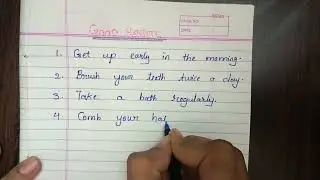 Good Habits
1. Get up early in the morning.
2. Brush your teeth twice a day.
3. Take a bath regularly.
4. Comb your hai